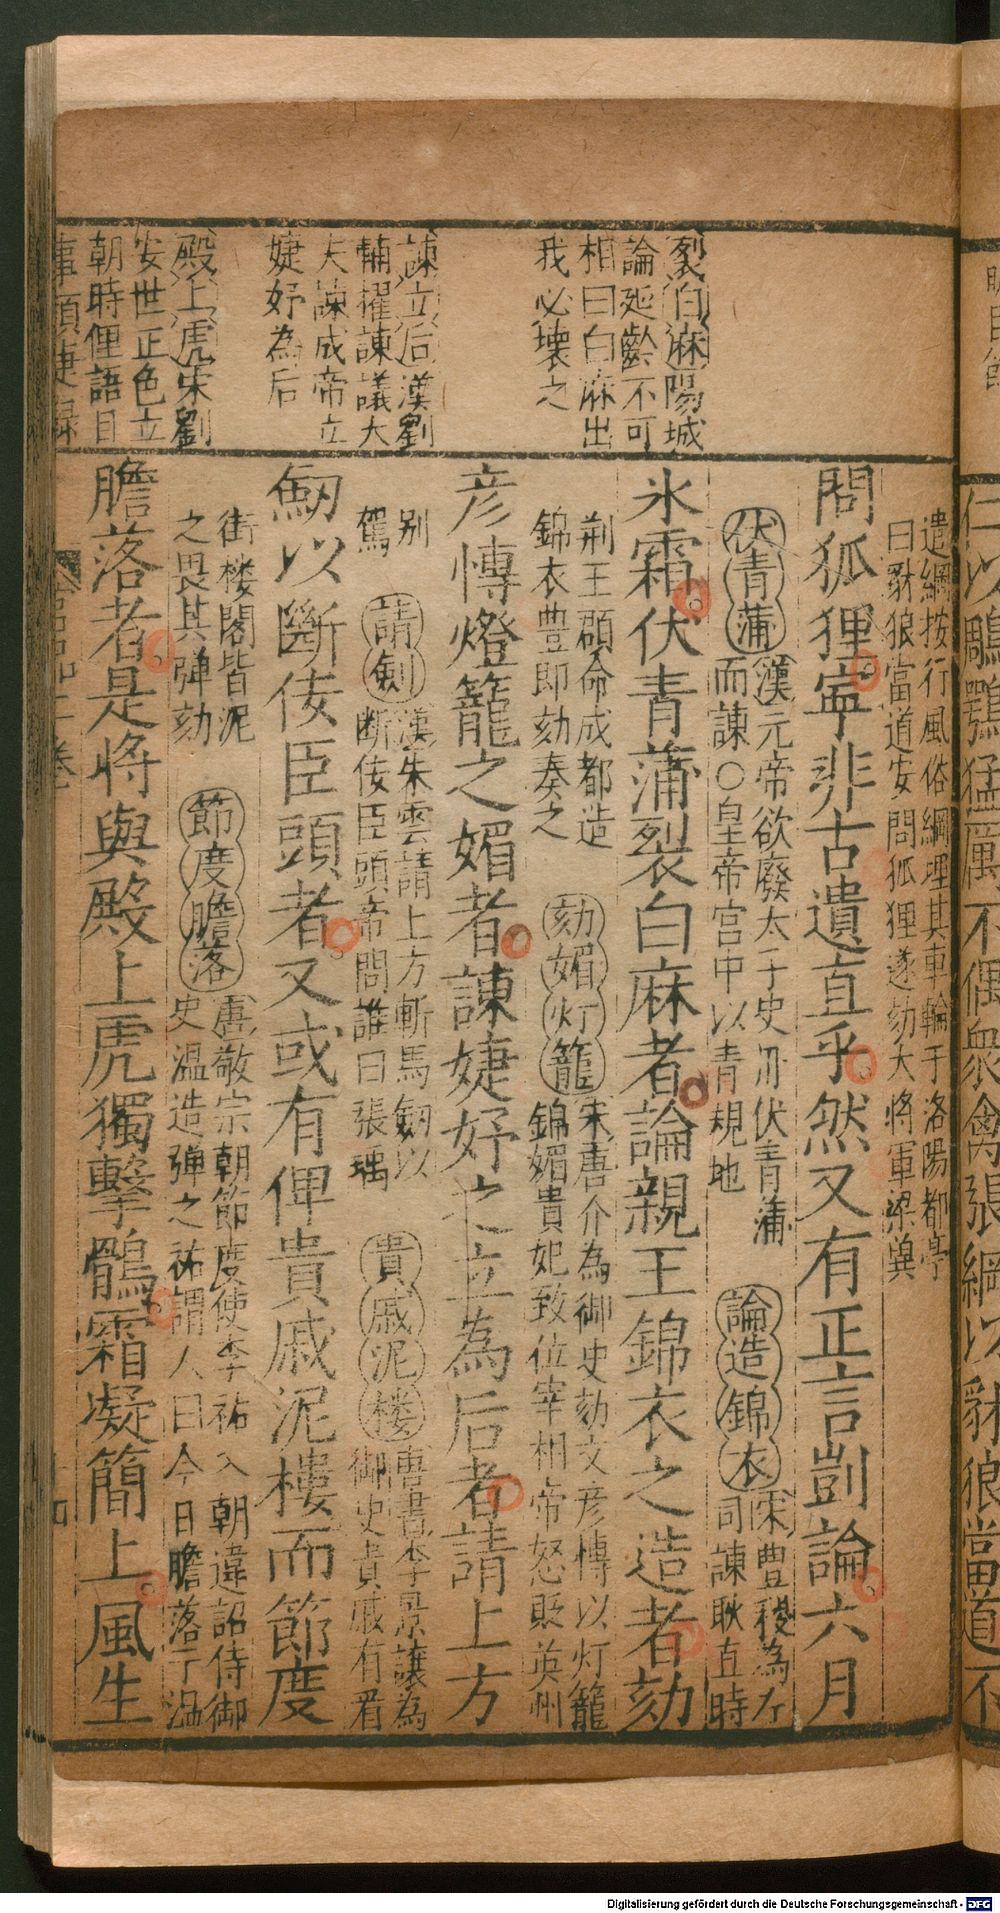 裂白麻陽城
論延齡不可
相曰白麻出
我必壞之
諫立后漢劉
輔擢諫議大
夫諫成帝立
婕妤為后
殿上虎宋劉
安世正色立
朝時俚語目
遣綱按行風俗綱埋其車輪于洛陽都亭
曰豺狼當道安問狐狸遂劾大將軍梁冀
問狐狸寧非古遺直乎然又有正言剴論六月
伏青蒲漢元帝欲廢太子史丹伏青蒲
而諫○皇帝宮中以青規地
論造錦衣宋豊稷為左
司諫耿直時
氷霜伏青蒲裂白麻者論親王錦衣之造者劾
荊王頵命成都造
錦衣豊即劾奏之
劾媚灯籠宋唐介為御史劾文彦博以灯籠
錦媚貴妃致位宰相帝怒貶英州
彦慱燈籠之媚者諫婕妤之立為后者請上方
别
駕
請劍漢朱雲請上方斬馬劍以
断佞臣頭帝問誰曰張禹
貴戚泥楼唐書李景讓為
御史貴戚有看
劒以斷佞臣頭者又或有俾貴戚泥樓而節度
街楼閣皆泥
之畏其弾劾
節度膽落唐敬宗朝節度使李祐入朝違詔侍御
史温造弾之祐謂人曰今日膽落于温
膽落者是將與殿上虎獨擊鶻霜凝簡上風生
仁以鵰鶚猛厲不偶衆禽張綱以豺狼當道不
Digitalisierung gefördert durch die Deutsche Forschungsgemeinschaft - DFG